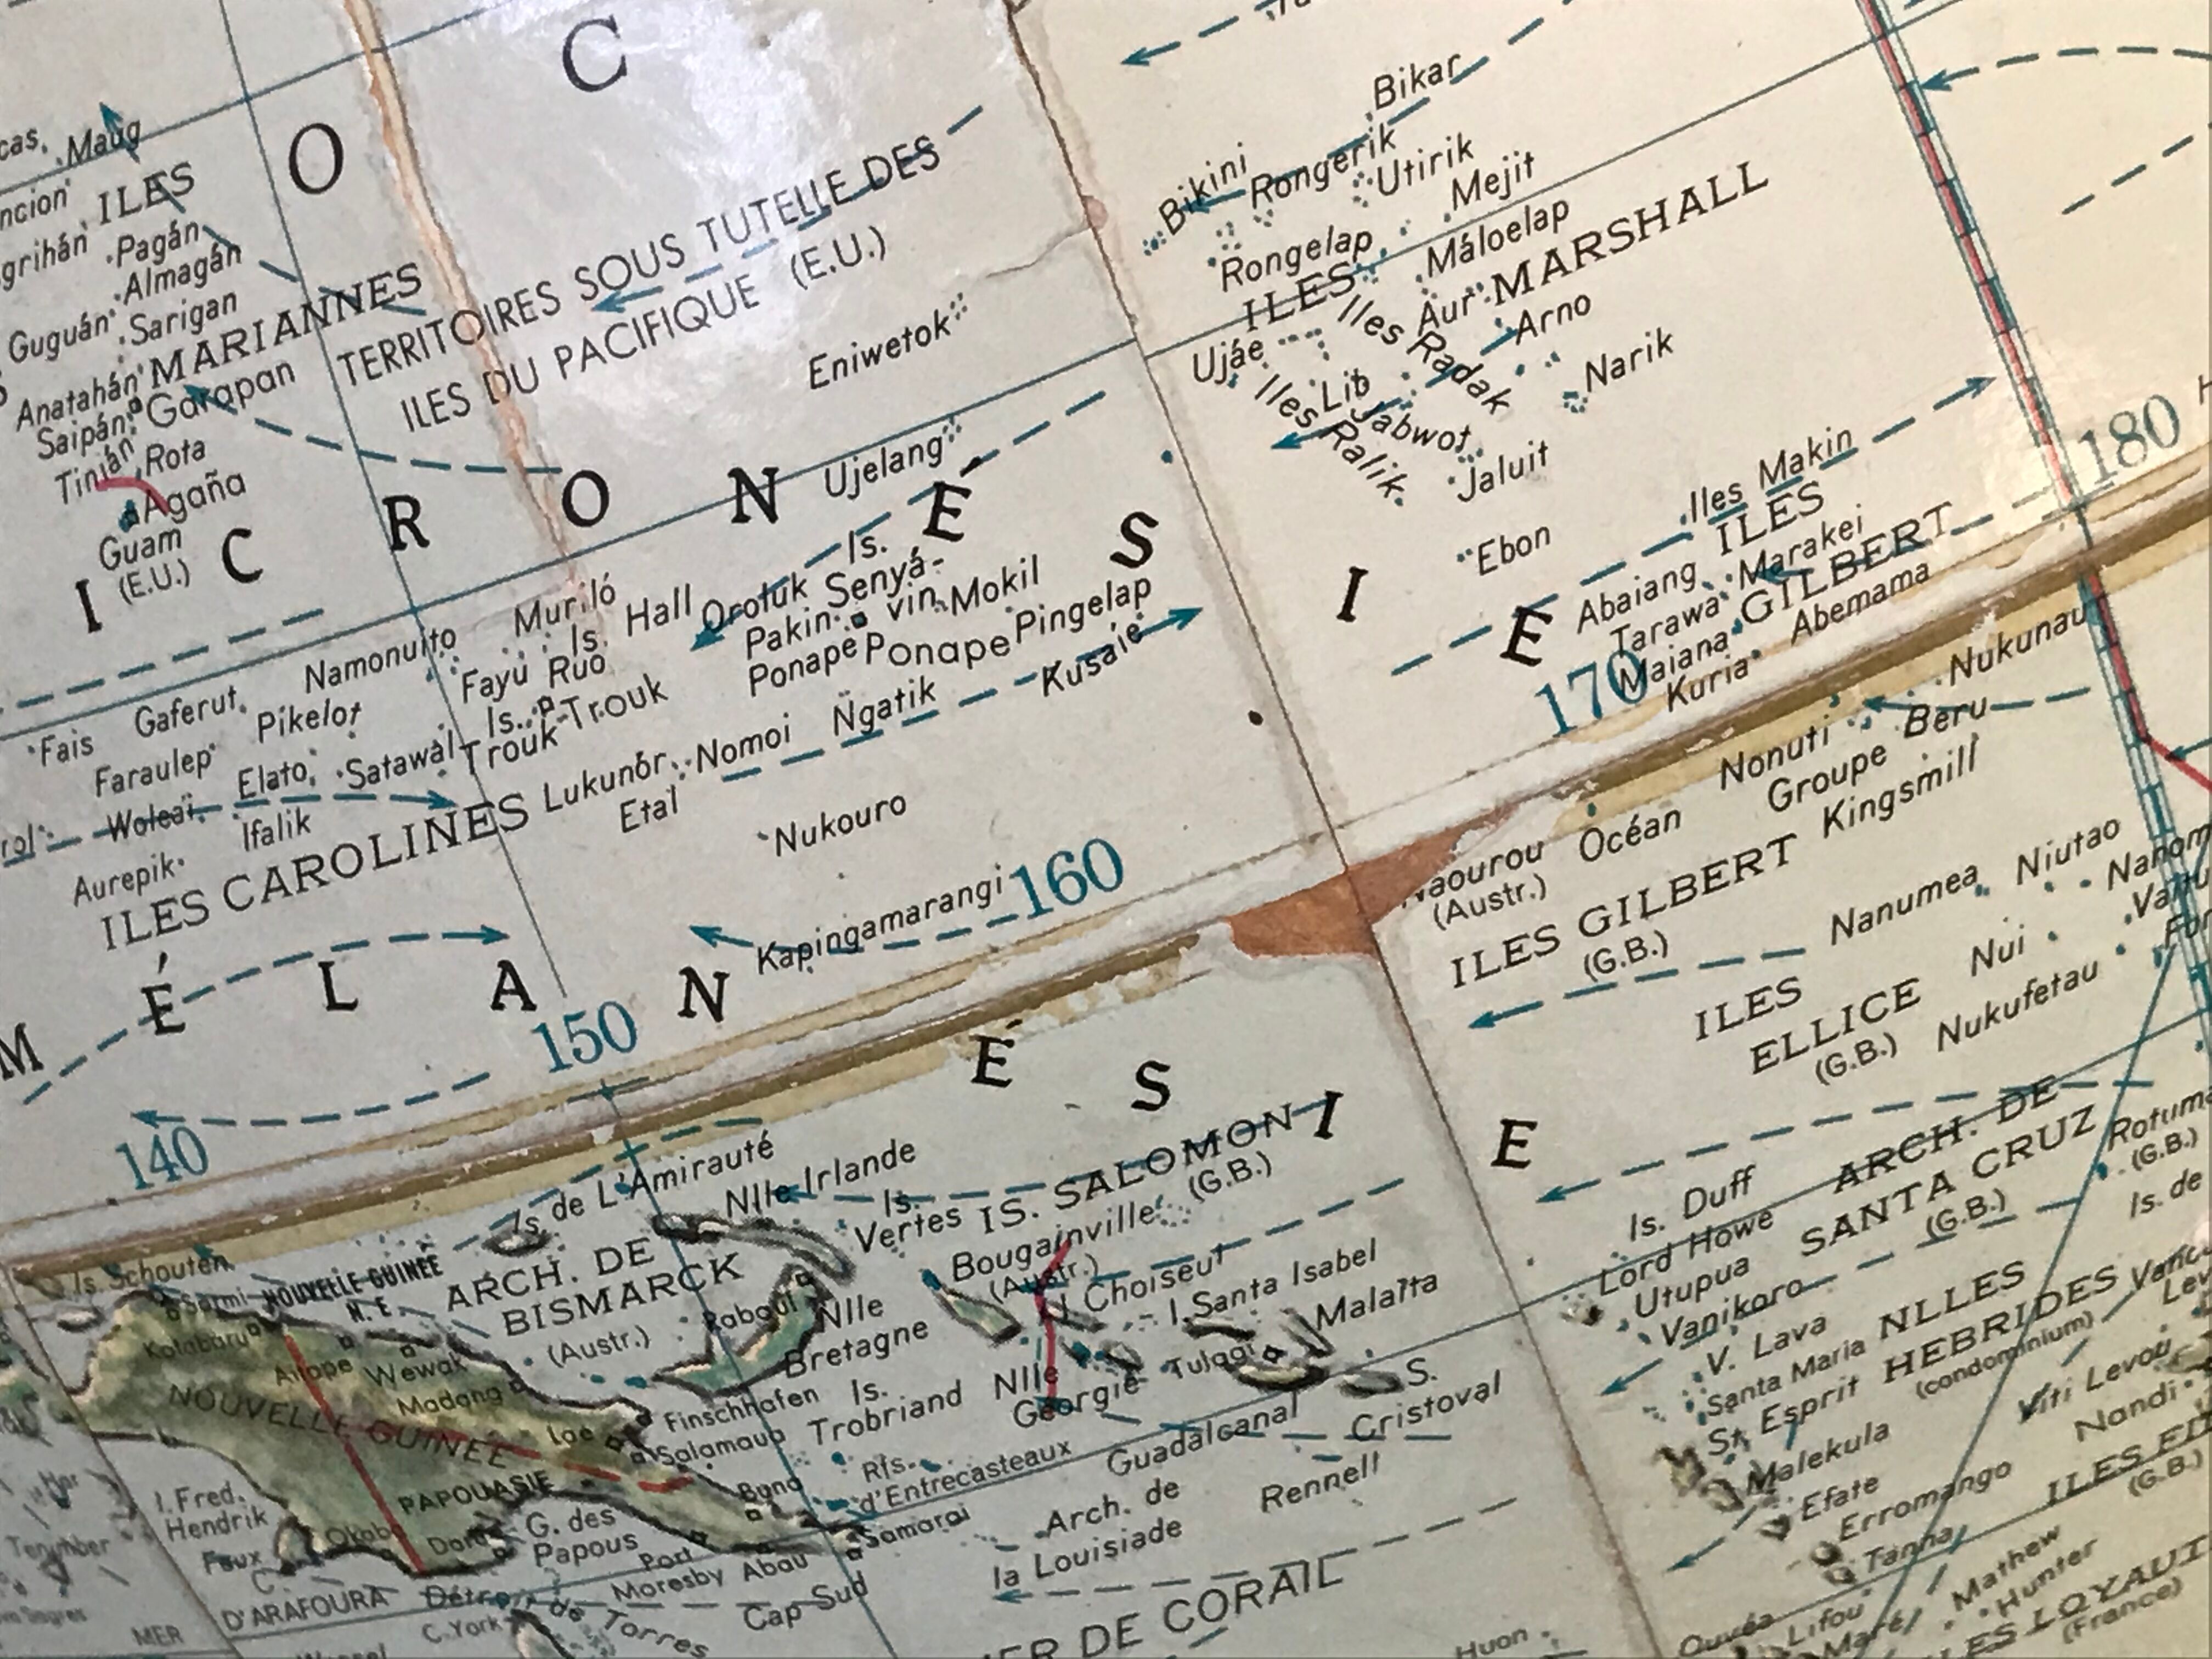 O C
Maug
ILES
Pagán
Almagán
Guguán
Sarigan
MARIANNES
Anatahán
Saipán
Garapan
Tinián
Rota
Agaña
Guam
(E.U.)
TERRITOIRES SOUS TUTELLE DES
ILES DU PACIFIQUE (E.U.)
Eniwetok
Ujelang
Bikar
Bikini
Rongerik
Utirik
Mejit
Rongelap
Máloelap
ILES MARSHALL
Aur
Arno
Iles Radak
Narik
Ujáe
Lib
Iles Ralik
Jabwot
Jaluit
Ebon
I C R O N É S I E
180
Iles Makin
ILES
GILBERT
Abaiang
Marakei
Tarawa
Maiana
Abemama
Kuria
170
Muriló
Is. Hall
Oroluk
Is.
Senyá-
vin
Pakin
Mokil
Ponape
Ponape
Pingelap
Kusaie
Namonuito
Fayu
Ruo
Is.
Trouk
Trouk
Gaferut
Pikelot
Fais
Faraulep
Elato
Satawal
Woleaï
Ifalik
Aurepik
ILES CAROLINES
Lukunór
Nomoi
Ngatik
Etal
Nukouro
Kapingamarangi
160
150
140
M É L A N É S I E
Nukunau
Beru
Nonuti
Groupe
Kingsmill
Océan
Naourou
(Austr.)
ILES GILBERT
(G.B.)
Nanumea
Niutao
Nui
ILES
ELLICE
(G.B.)
Nukufetau
Is. de L'Amirauté
Nlle Irlande
Is.
Vertes
IS. SALOMON
(G.B.)
Bougainville
(Austr.)
Choiseul
I. Santa Isabel
Malaïta
Is. Schouten
Sarmi
NOUVELLE-GUINÉE
N. E.
ARCH. DE
BISMARCK
(Austr.)
Rabaul
Nlle
Bretagne
Kolabaru
Aitape
Wewak
Madang
NOUVELLE GUINÉE
Lae
Finschhafen
Salamaua
Is.
Trobriand
Nlle
Georgie
Tulagi
S.
Cristoval
Guadalcanal
Rennell
Is.
d'Entrecasteaux
Buna
PAPOUASIE
Samarai
Arch. de
la Louisiade
I. Fred.
Hendrik
Faux
C.
Okaba
Daru
G. des
Papous
Port
Moresby
Abau
Cap Sud
D'ARAFOURA
MER
Détroit de Torres
C. York
DE CORAIL
Huon
Is. Duff
ARCH. DE
SANTA CRUZ
(G.B.)
Lord Howe
Utupua
Vanikoro
Rotuma
(G.B.)
Is. de
V. Lava
Santa Maria
NLLES
HEBRIDES
(condominium)
St. Esprit
Malekula
Efate
Erromango
Tanna
Viti Levou
Nandi
(G.B.)
Mathew
Hunter
Ouvéa
Lifou
Maré
(France)